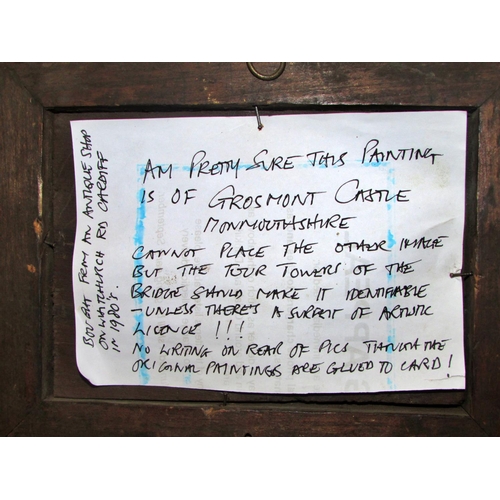 AM PRETTY SURE THIS PAINTING
IS OF GROSMONT CASTLE
MONMOUTHSHIRE
CANNOT PLACE THE OTHER IMAGE
BUT THE FOUR TOWERS OF THE
BRIDGE SHOULD MAKE IT IDENTIFIABLE
- UNLESS THERE'S A SURFEIT OF ARTISTIC
LICENCE !!!
NO WRITING ON REAR OF PICS THOUGH THE
ORIGINAL PAINTINGS ARE GLUED TO CARD!
BOUGHT FROM AN ANTIQUE SHOP
ON WHITCHURCH RD CARDIFF
IN 1980's.